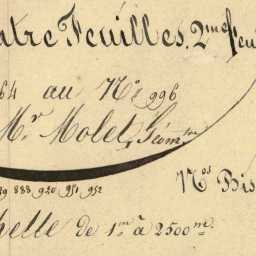 atre Feuilles. 2me feu
64 au No. 996
Mr. Molet, Géomtre
19 888 920 951 952
Nos Bis
helle de 1m. à 2500m.